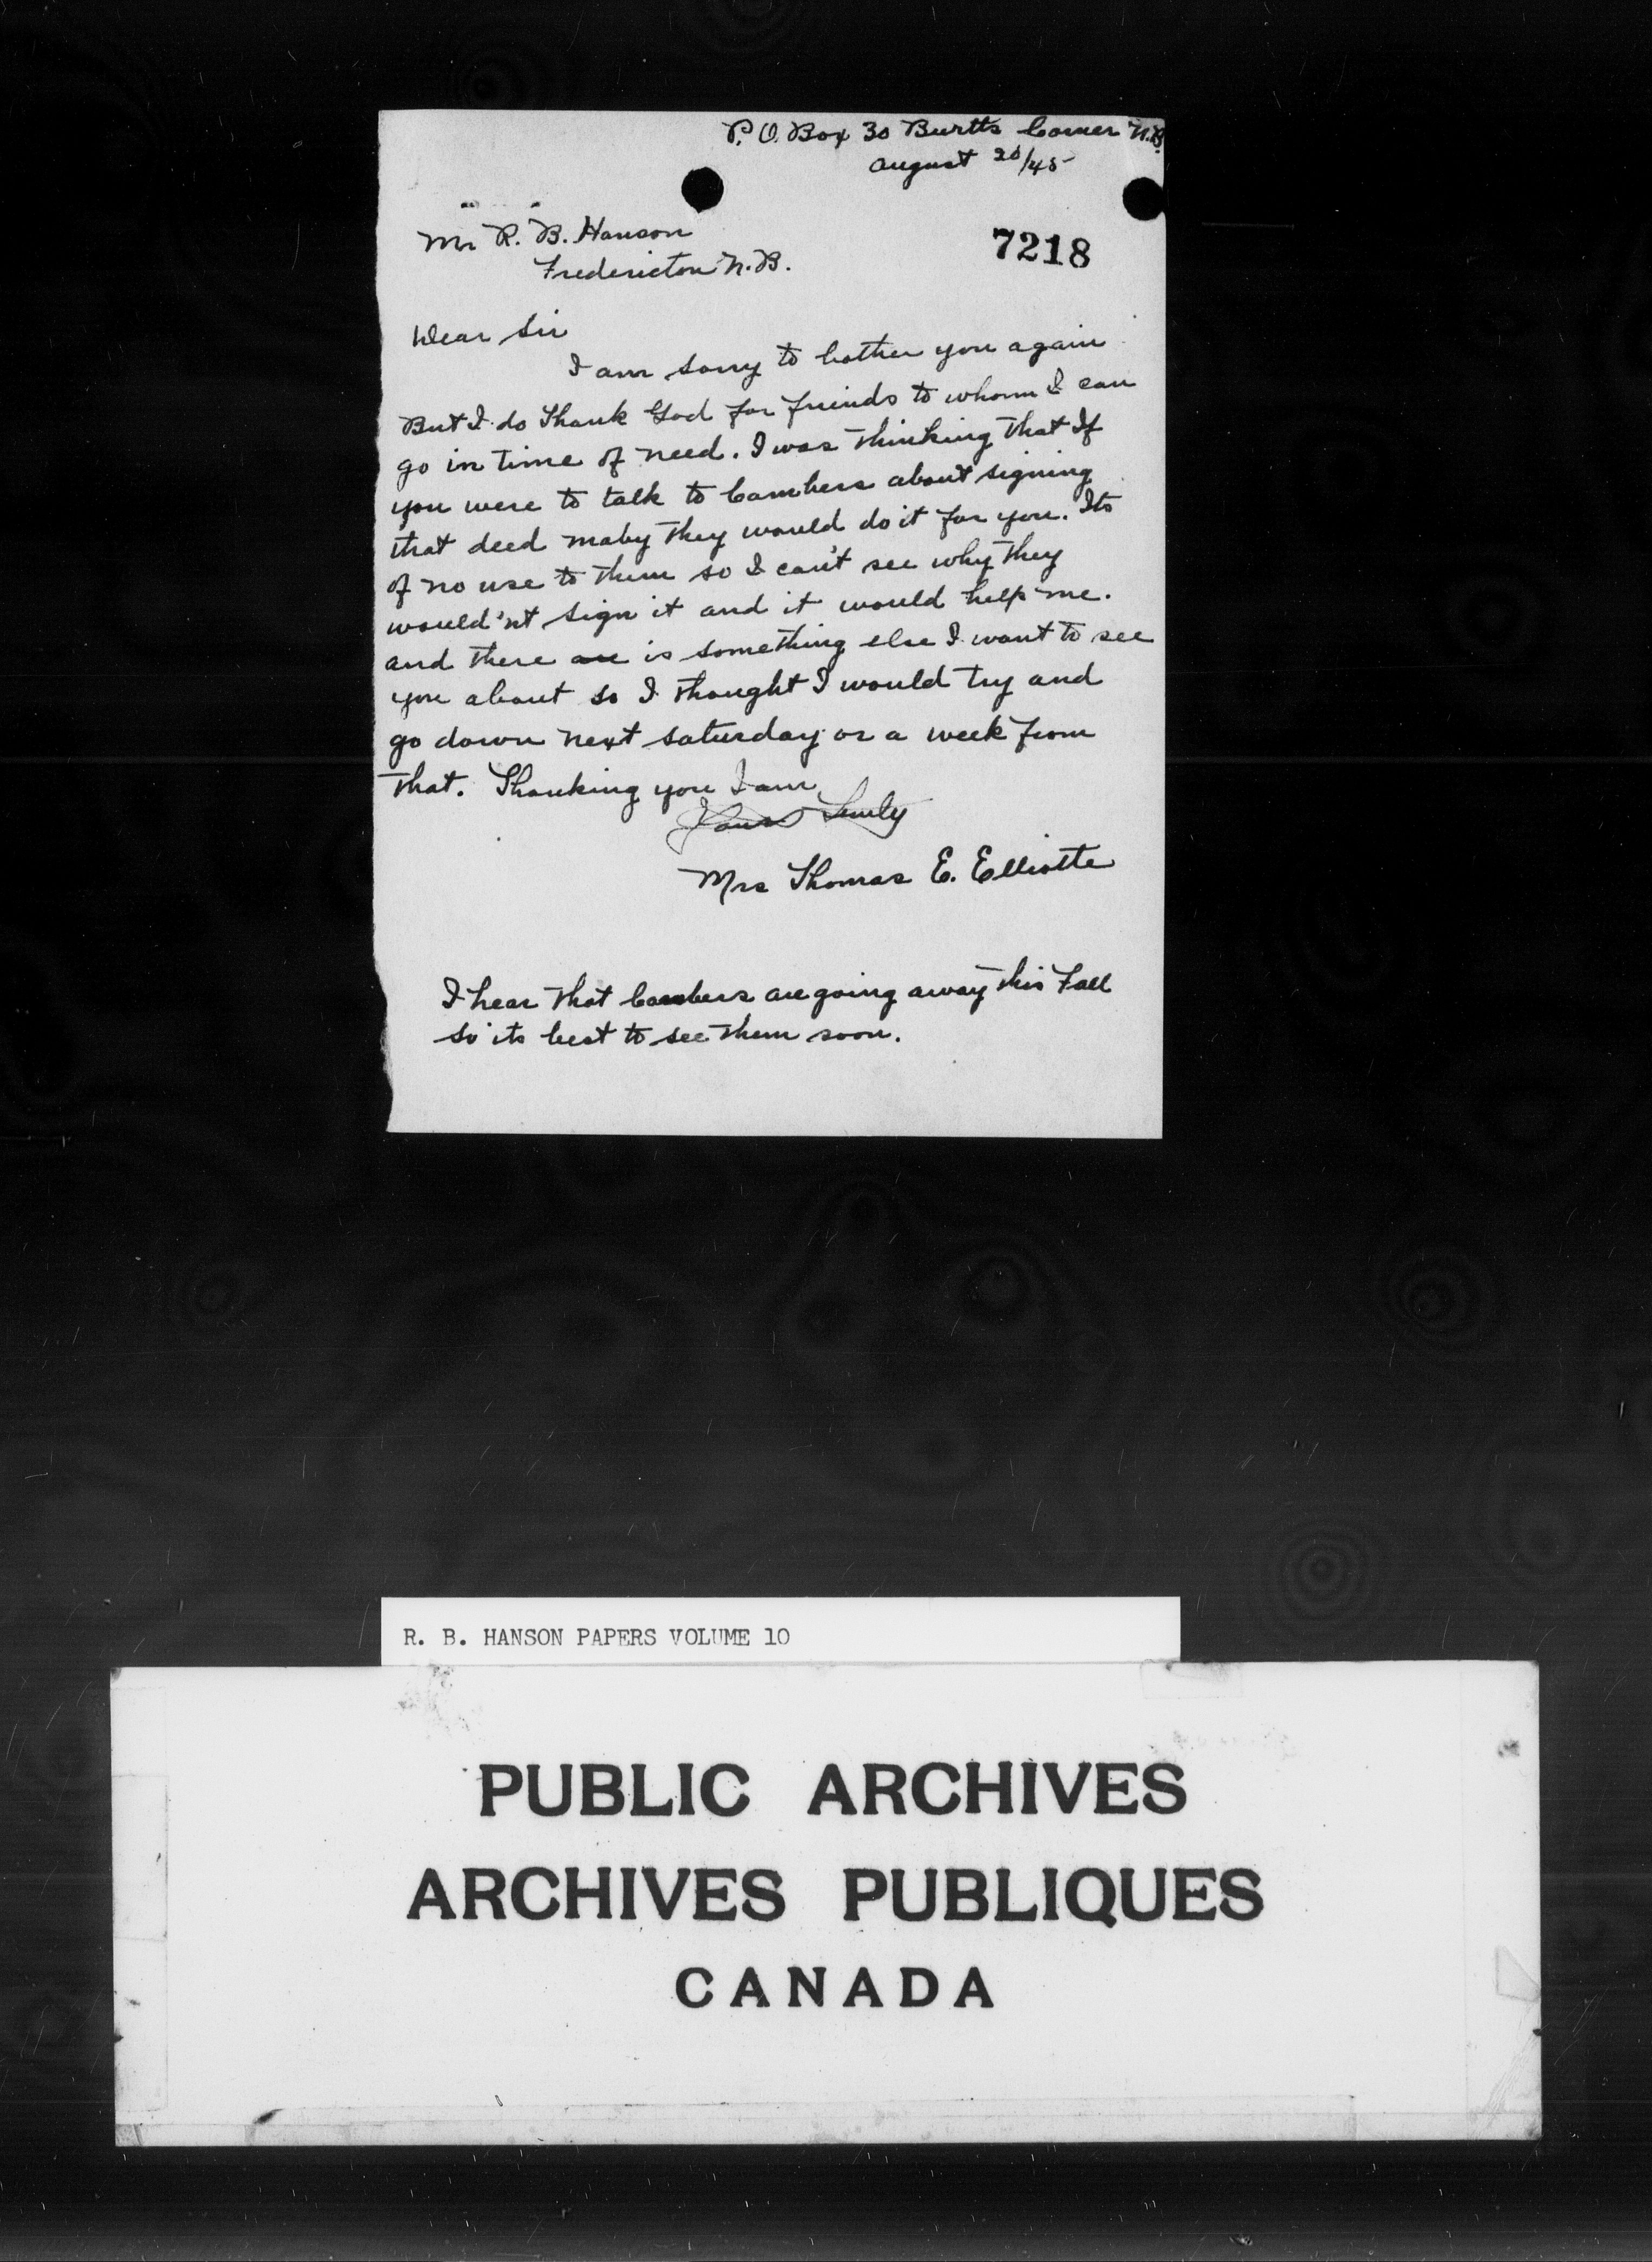 P.O. Box 30 Burtts Corner N.B.
august 20/45
7218
Mr R. B. Hanson
Fredericton N.B.
Dear Sir
I am sorry to bother you again
But I do Thank God for friends to whom I can
go in time of need. I was thinking that If
you were to talk to Cambers about signing
that deed maby they would do it for you. Its
of no use to them so I can't see why they
would'nt sign it and it would help me.
and there are is something else I want to see
you about so I thought I would try and
go down next saturday or a week from
that. Thanking you I am
Yours Truly
Mrs Thomas E. Elliotte
I hear that Cambers are going away this Fall
so its best to see them soon.
R. B. HANSON PAPERS VOLUME 10
PUBLIC ARCHIVES
ARCHIVES PUBLIQUES
CANADA